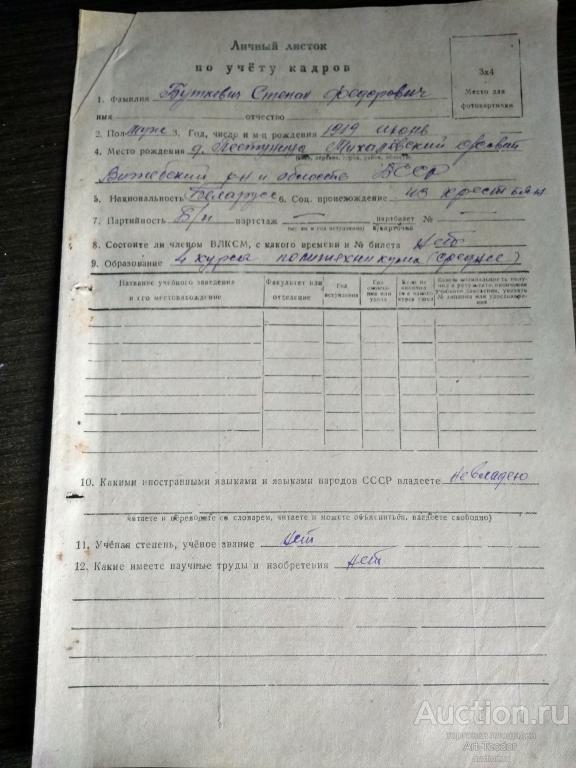 Личный листок
по учёту кадров
3х4
Место для
фотокарточки
1. Фамилия Буткевич Степан Федорович
имя отчество
2. Пол Муж 3. Год, число и м-ц рождения 1919 июнь
4. Место рождения д. Михаловский
(село, деревня, город, район, область)
Витебский рн и область БССР
5. Национальность Беларусс 6. Соц. происхождение из крестьян
7. Партийность Б/п партстаж — партбилет № —
кар́точка
8. Состоите ли членом ВЛКСМ, с какого времени и № билета Нет
9. Образование 4 курса политехникума (среднее)
Название учебного заведения
и его местонахождение
Факультет или
отделение
Год
вступления
Год
окончания или
ухода
Если не
окончил,
то с какого
курса ушел
10. Какими иностранными языками и языками народов СССР владеете не владею
читаете и переводите со словарем, читаете и можете объясниться, владеете свободно)
11. Учёная степень, учёное звание нет
12. Какие имеете научные труды и изобретения нет
Auction.ru
торговая площадка
Art-Teodor
auction.ru